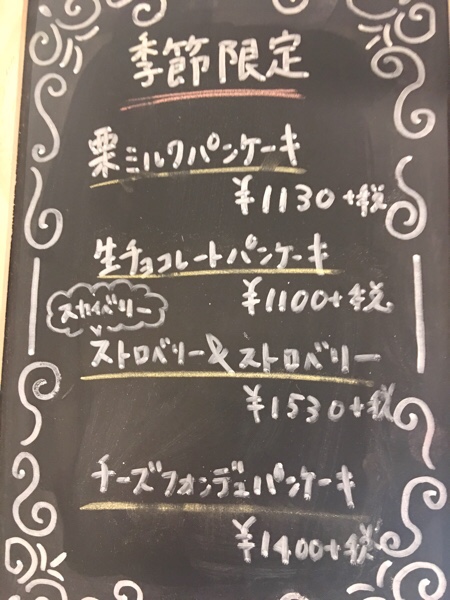 季節限定
栗ミルクパンケーキ
¥1130+税
生チョコレートパンケーキ
¥1100+税
スカイベリー
ストロベリー&ストロベリー
¥1530+税
チーズフォンデュパンケーキ
¥1400+税